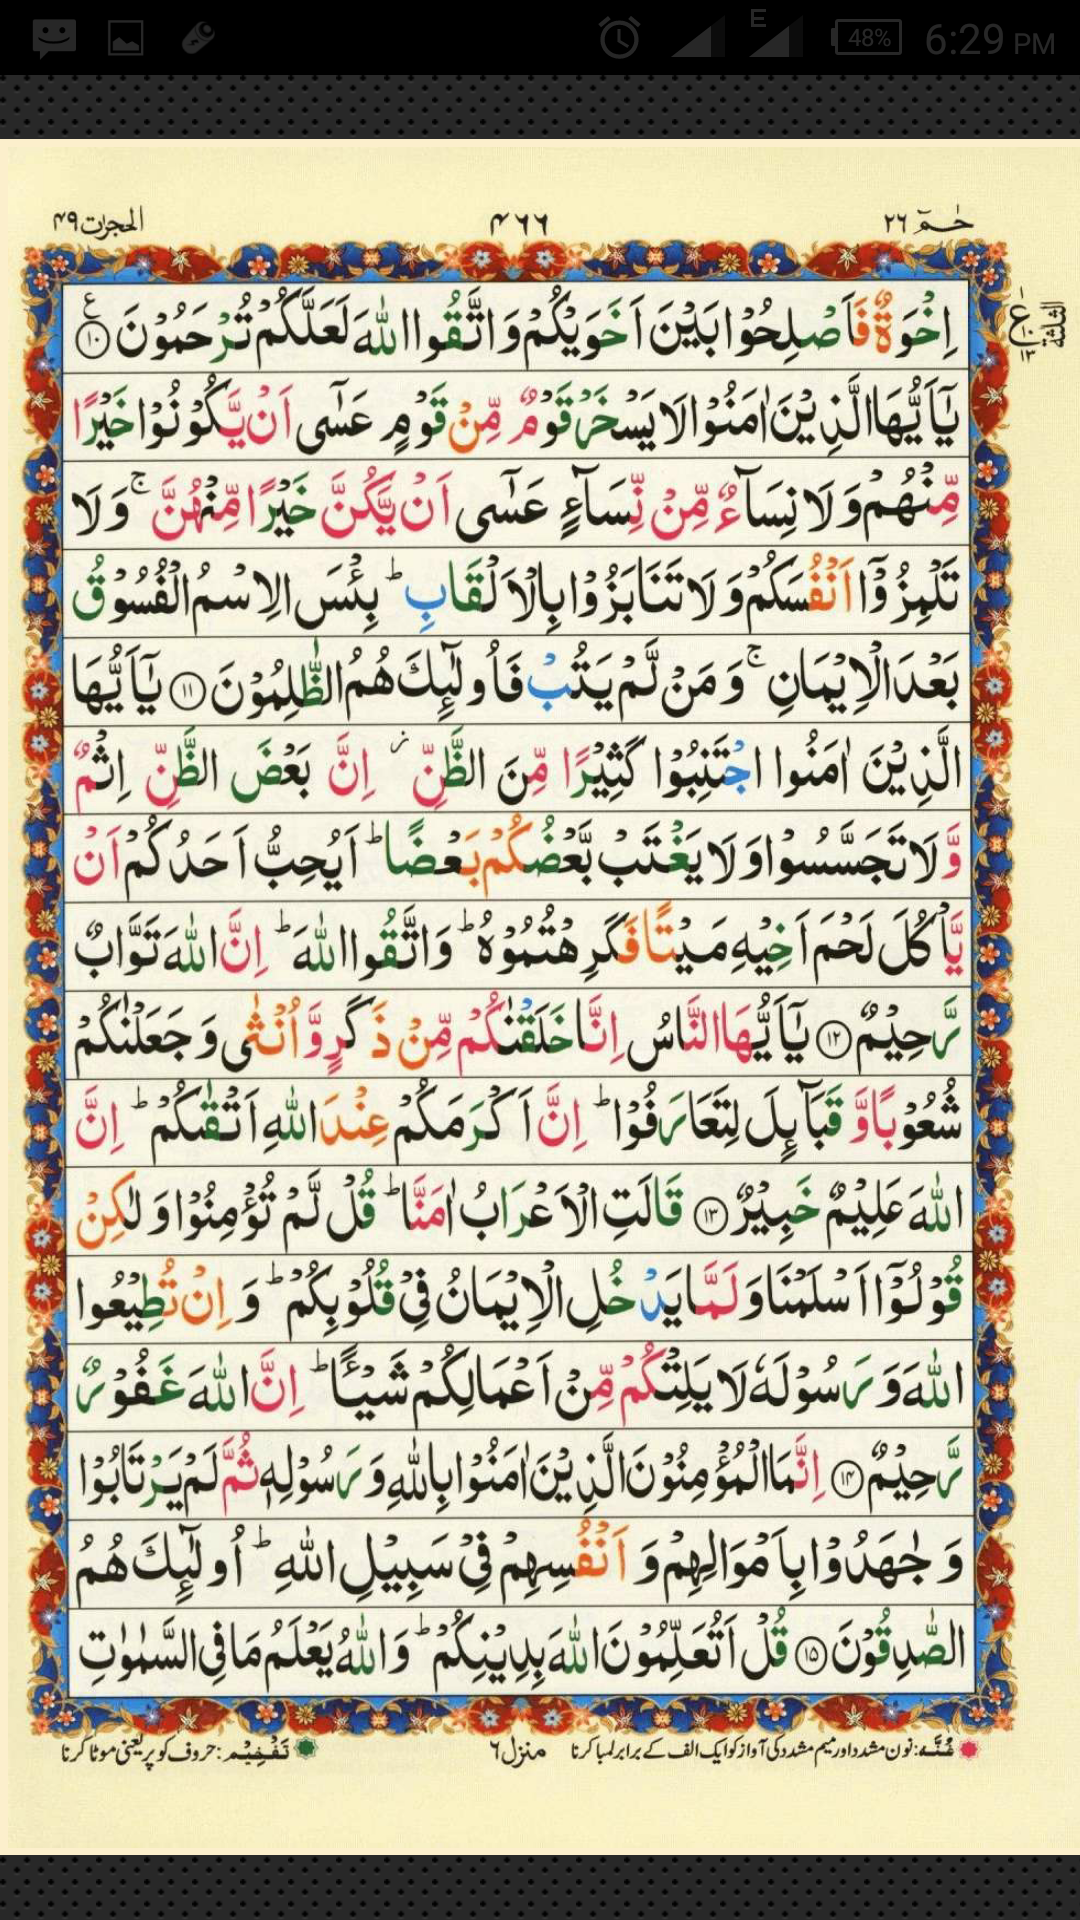 6:29 PM
48%
E
حٰمٓ ٢٦
٤٦٦
الحجرات ٤٩
اِخْوَةٌ فَاَصْلِحُوْا بَيْنَ اَخَوَيْكُمْ وَاتَّقُوا اللّٰهَ لَعَلَّكُمْ تُرْحَمُوْنَ ⑩ ع
ع ١٠ ١٣ الثلثة
يٰٓاَيُّهَا الَّذِيْنَ اٰمَنُوْا لَا يَسْخَرْ قَوْمٌ مِّنْ قَوْمٍ عَسٰٓى اَنْ يَّكُوْنُوْا خَيْرًا
مِّنْهُمْ وَلَا نِسَآءٌ مِّنْ نِّسَآءٍ عَسٰٓى اَنْ يَّكُنَّ خَيْرًا مِّنْهُنَّ ۚ وَلَا
تَلْمِزُوْٓا اَنْفُسَكُمْ وَلَا تَنَابَزُوْا بِالْاَلْقَابِ ؕ بِئْسَ الِاسْمُ الْفُسُوْقُ
بَعْدَ الْاِيْمَانِ ۚ وَمَنْ لَّمْ يَتُبْ فَاُولٰٓئِكَ هُمُ الظّٰلِمُوْنَ ⑪ يٰٓاَيُّهَا
الَّذِيْنَ اٰمَنُوا اجْتَنِبُوْا كَثِيْرًا مِّنَ الظَّنِّ ز اِنَّ بَعْضَ الظَّنِّ اِثْمٌ
وَّلَا تَجَسَّسُوْا وَلَا يَغْتَبْ بَّعْضُكُمْ بَعْضًا ؕ اَيُحِبُّ اَحَدُكُمْ اَنْ
يَّاْكُلَ لَحْمَ اَخِيْهِ مَيْتًا فَكَرِهْتُمُوْهُ ؕ وَاتَّقُوا اللّٰهَ ؕ اِنَّ اللّٰهَ تَوَّابٌ
رَّحِيْمٌ ⑫ يٰٓاَيُّهَا النَّاسُ اِنَّا خَلَقْنٰكُمْ مِّنْ ذَكَرٍ وَّاُنْثٰى وَجَعَلْنٰكُمْ
شُعُوْبًا وَّقَبَآئِلَ لِتَعَارَفُوْا ؕ اِنَّ اَكْرَمَكُمْ عِنْدَ اللّٰهِ اَتْقٰىكُمْ ؕ اِنَّ
اللّٰهَ عَلِيْمٌ خَبِيْرٌ ⑬ قَالَتِ الْاَعْرَابُ اٰمَنَّا ؕ قُلْ لَّمْ تُؤْمِنُوْا وَلٰكِنْ
قُوْلُوْٓا اَسْلَمْنَا وَلَمَّا يَدْخُلِ الْاِيْمَانُ فِيْ قُلُوْبِكُمْ ؕ وَاِنْ تُطِيْعُوا
اللّٰهَ وَرَسُوْلَهٗ لَا يَلِتْكُمْ مِّنْ اَعْمَالِكُمْ شَيْـًٔا ؕ اِنَّ اللّٰهَ غَفُوْرٌ
رَّحِيْمٌ ⑭ اِنَّمَا الْمُؤْمِنُوْنَ الَّذِيْنَ اٰمَنُوْا بِاللّٰهِ وَرَسُوْلِهٖ ثُمَّ لَمْ يَرْتَابُوْا
وَجٰهَدُوْا بِاَمْوَالِهِمْ وَاَنْفُسِهِمْ فِيْ سَبِيْلِ اللّٰهِ ؕ اُولٰٓئِكَ هُمُ
الصّٰدِقُوْنَ ⑮ قُلْ اَتُعَلِّمُوْنَ اللّٰهَ بِدِيْنِكُمْ ؕ وَاللّٰهُ يَعْلَمُ مَا فِي السَّمٰوٰتِ
غُنَّه: نون مشدد اور میم مشدد کی آواز کو ایک الف کے برابر لمبا کرنا
منزل ٦
تَفْخِيْم: حروف کو پر یعنی موٹا کرنا